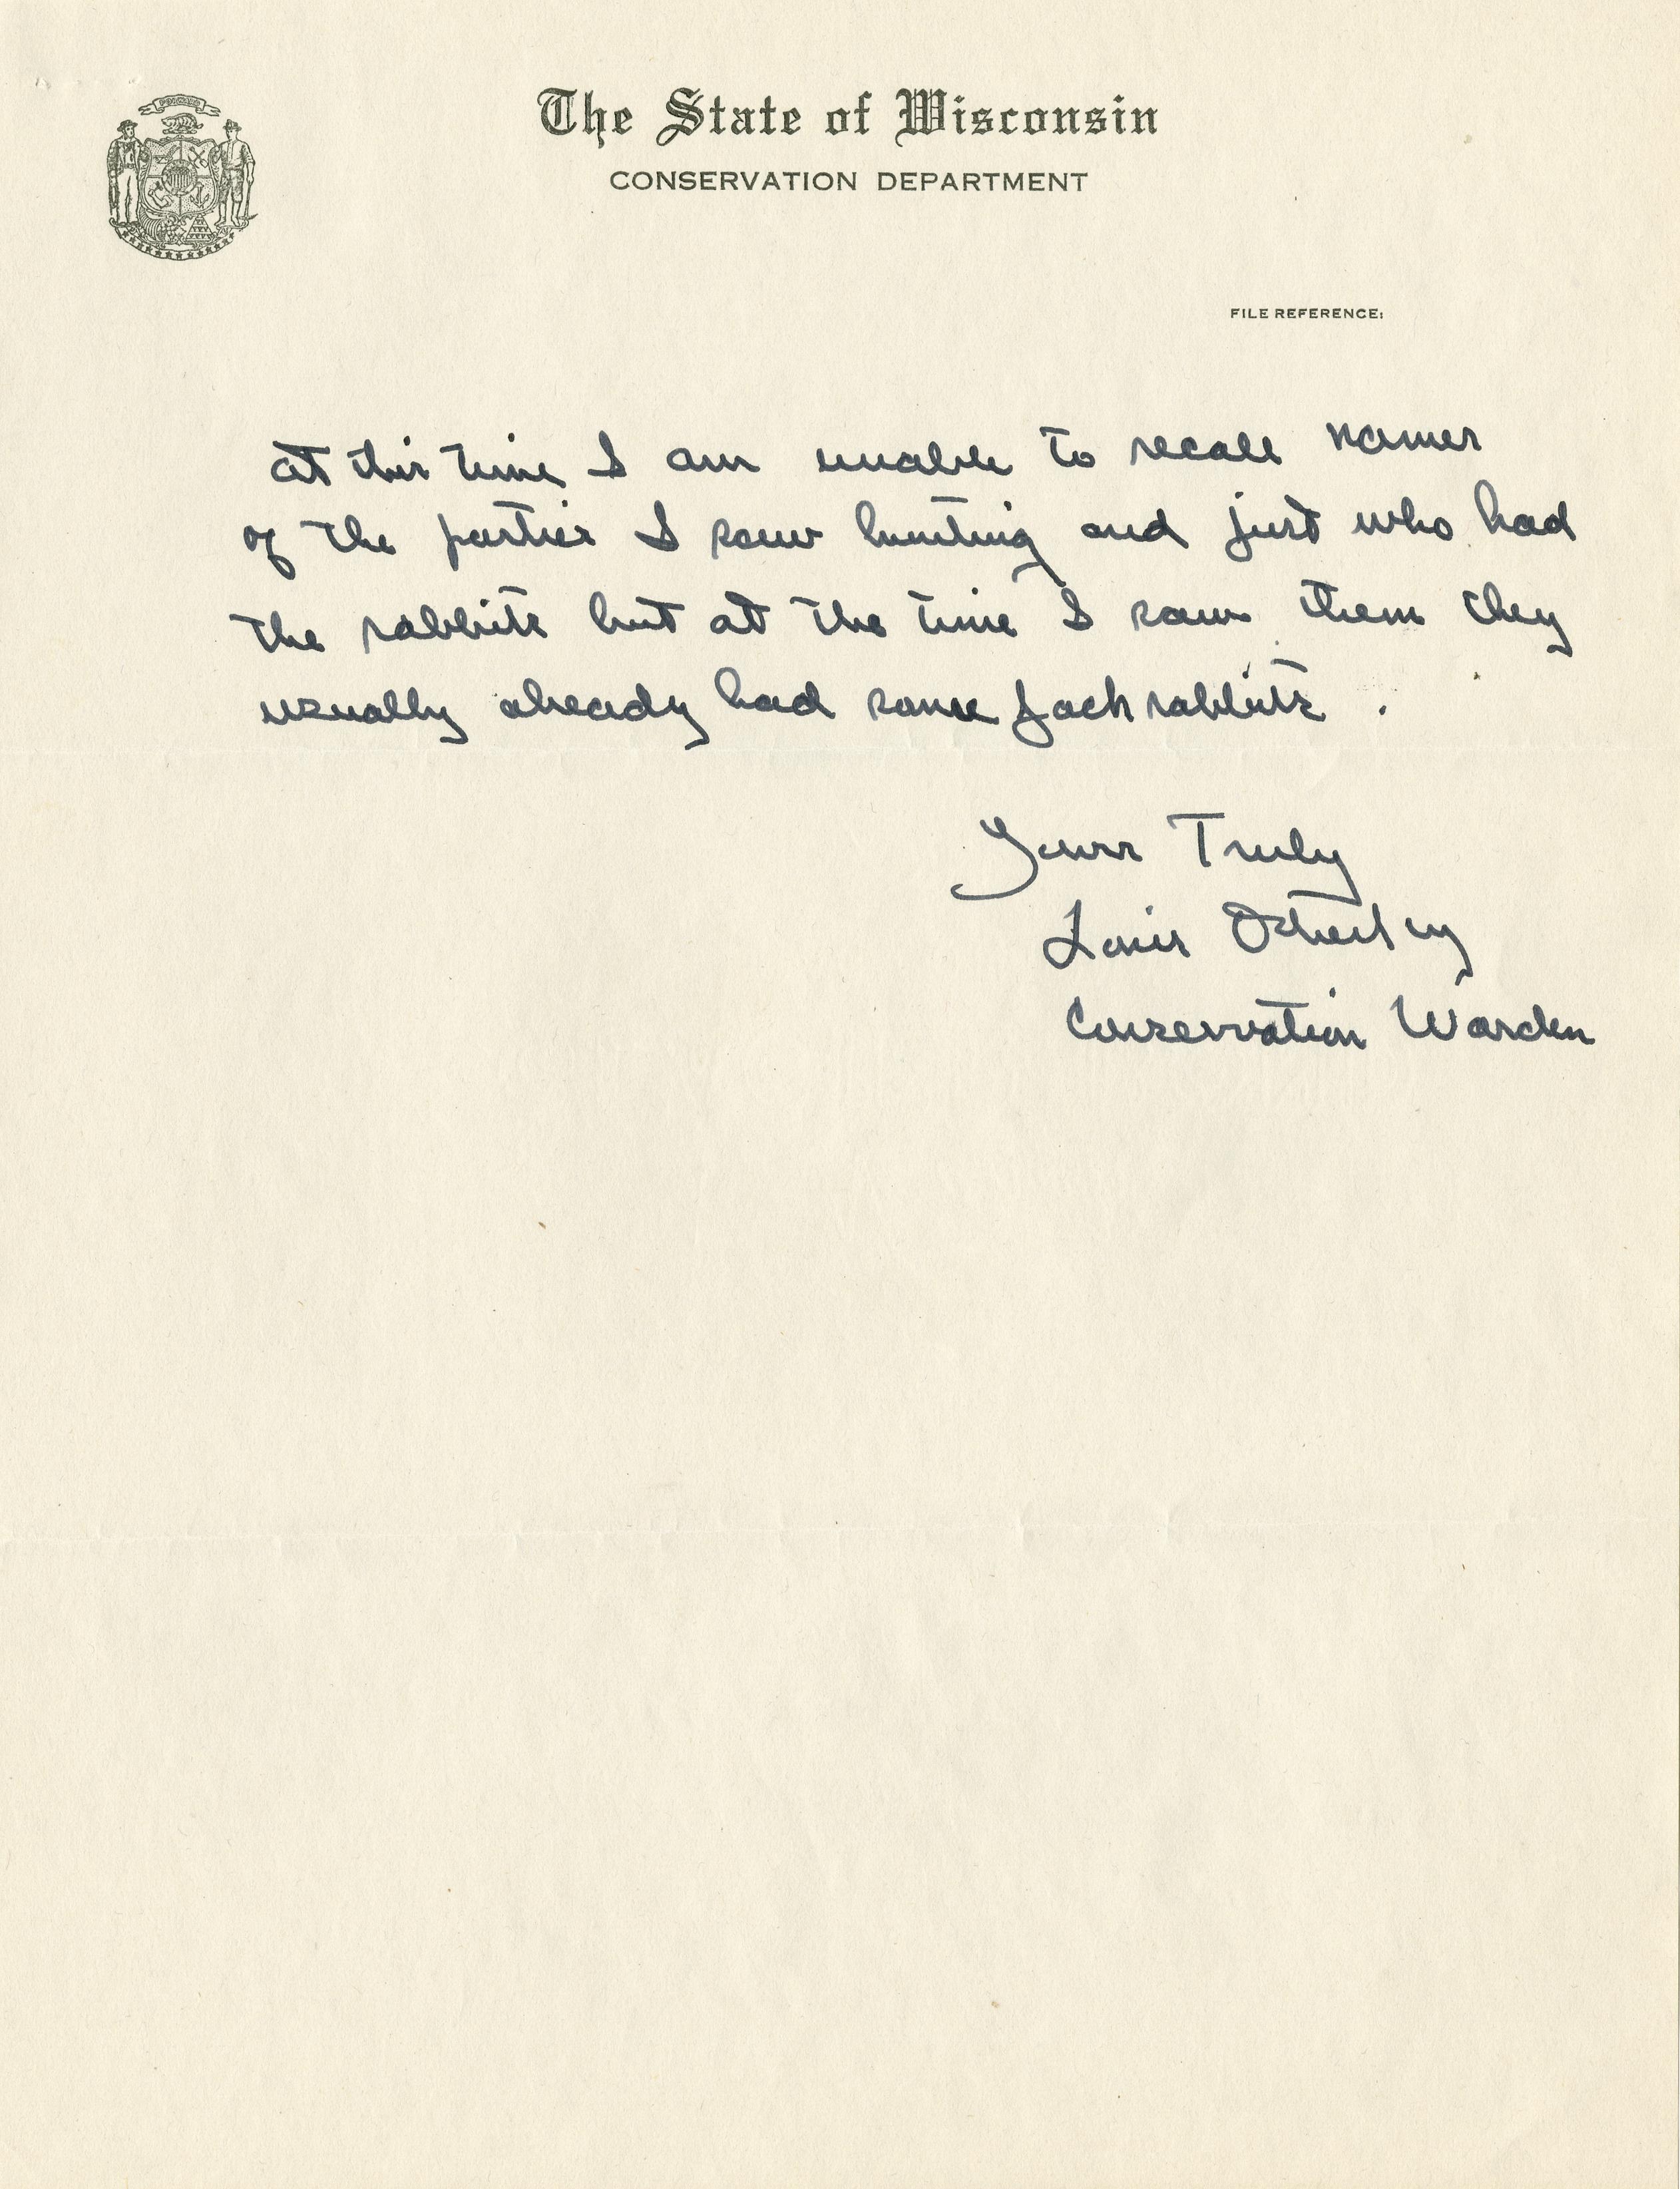 The State of Wisconsin
CONSERVATION DEPARTMENT
FILE REFERENCE:
at this time I am unable to recall names
of the parties I saw hunting and just who had
the rabbits but at the time I saw them they
usually already had some Jack rabbits .
Yours Truly
Louis
Conservation Warden